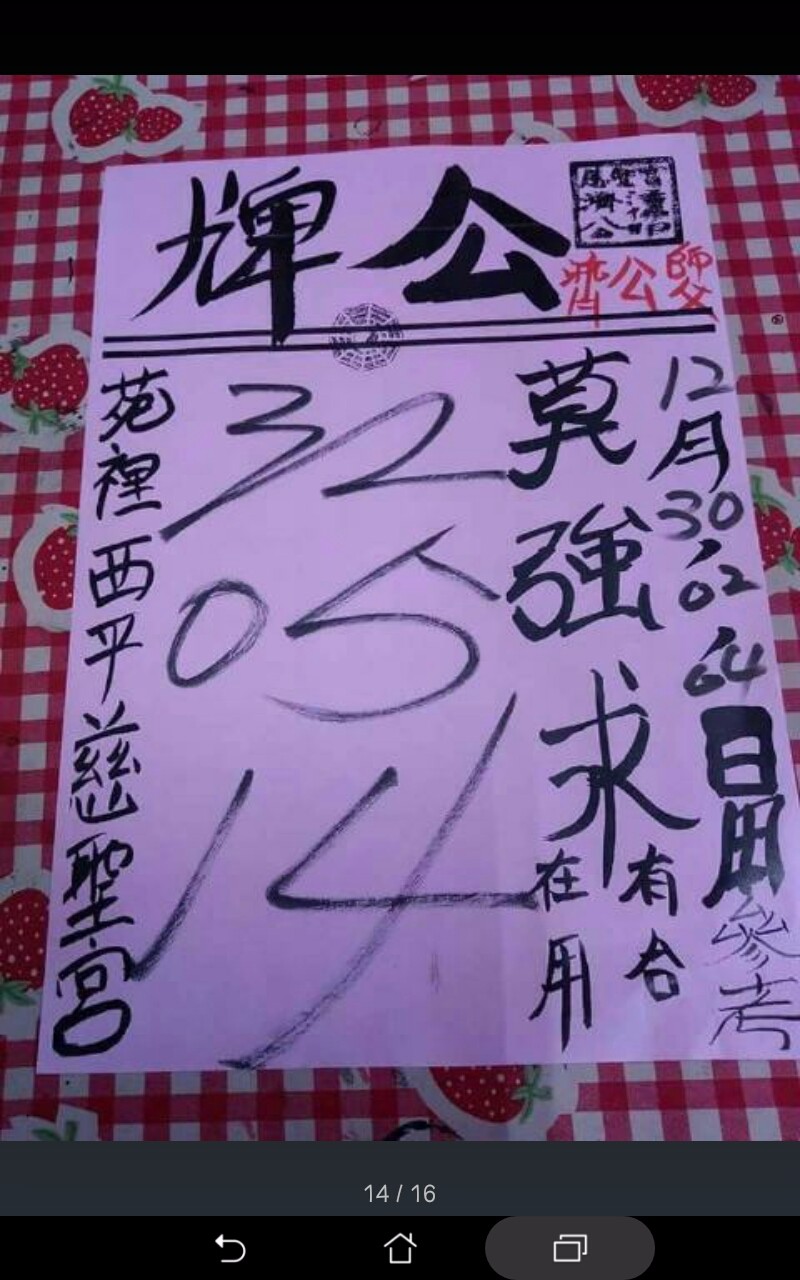 公牌
濟公師父
12月30、02、04日用參考
莫強求
有合
在用
32
05
14
苑裡西平慈聖宮
14 / 16